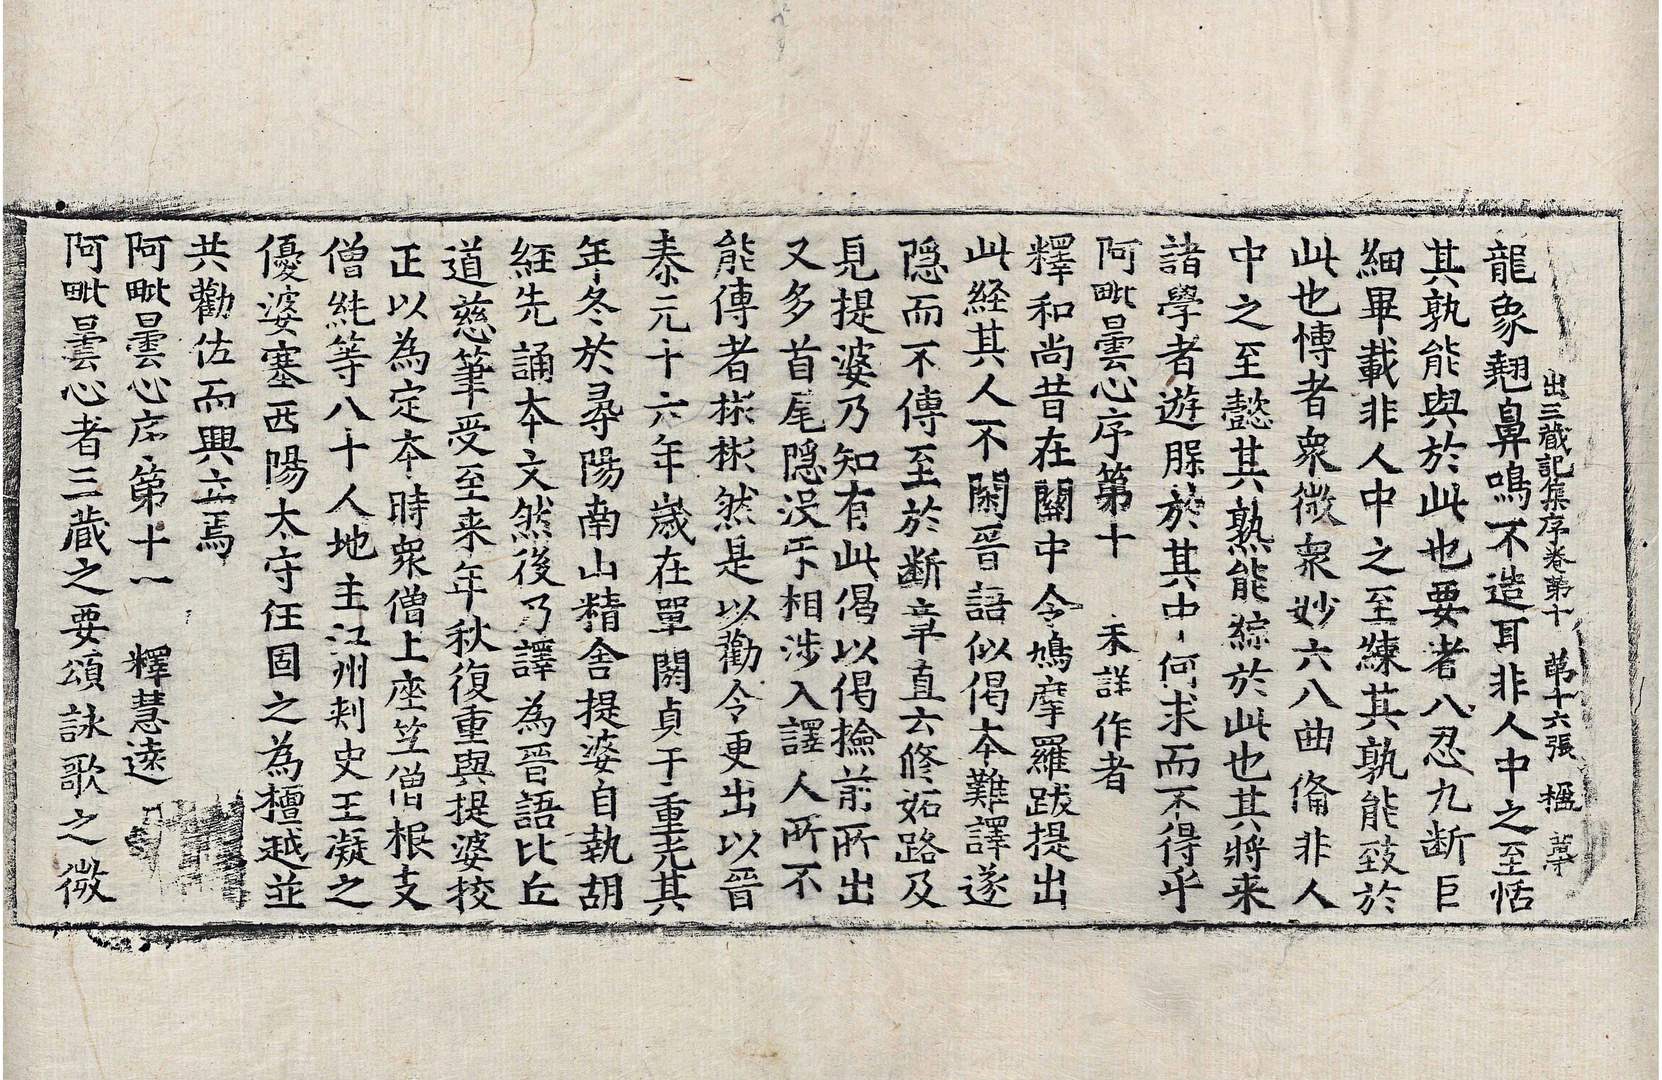 出三蔵記集序卷第十 第十六張 楹
龍象翹鼻鳴不造耳非人中之至恬
其孰能與於此也要者八忍九断巨
細畢載非人中之至練其孰能致於
此也愽者衆微衆妙六八曲俻非人
中之至懿其孰能綜於此也其將来
諸學者遊䐗於其中何求而不得乎
阿毗曇心序第十 未詳作者
釋和尚昔在關中令鳩摩羅跋提出
此経其人不閑晉語似偈夲難譯遂
隠而不傳至於断章直云修妬路及
見提婆乃知有此偈以偈撿前所出
又多首尾隠没𭃄相涉入譯人所不
能傳者彬彬然是以勸令更出以晉
泰元十六年歲在單閼貞于重光其
年冬於尋陽南山精舍提婆自執胡
経先誦夲文然後乃譯為晉語比丘
道慈筆受至来年秋復重與提婆挍
正以為定夲時衆僧上座竺僧根支
僧純等八十人地主江州刾史王凝之
優婆塞西陽太守任固之為檀越並
共勸佐而興立焉
阿毗曇心序第十一 釋慧逺
阿毗曇心者三蔵之要頌詠歌之微